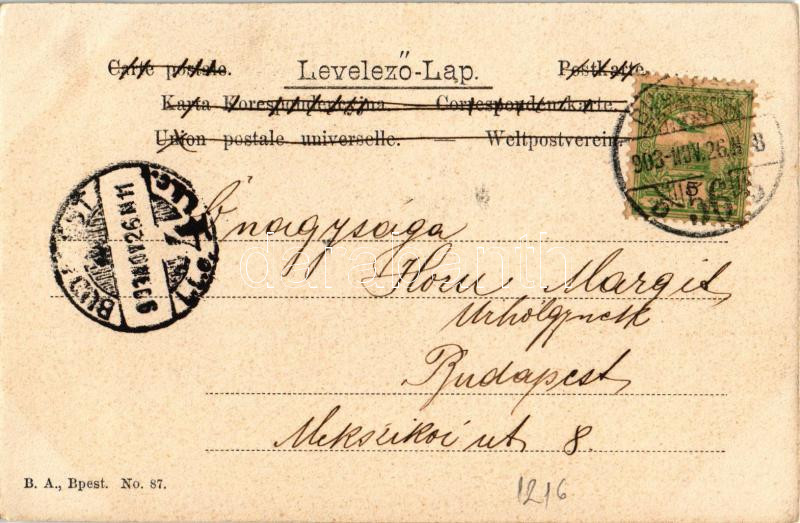 Carte postale. Levelező-Lap. Postkarte.
Karta Korespondencyjna. — Correspondenzkarte.
Union postale universelle. — Weltpostverein.
903 NOV. 26. N 8
5
BUDAPEST
903 NOV 26 N 11
Őnagysága
Margit
Urhölgynek
Budapest
Mekszikói ut 8.
B. A., Bpest. No. 87.
1216
darabanth